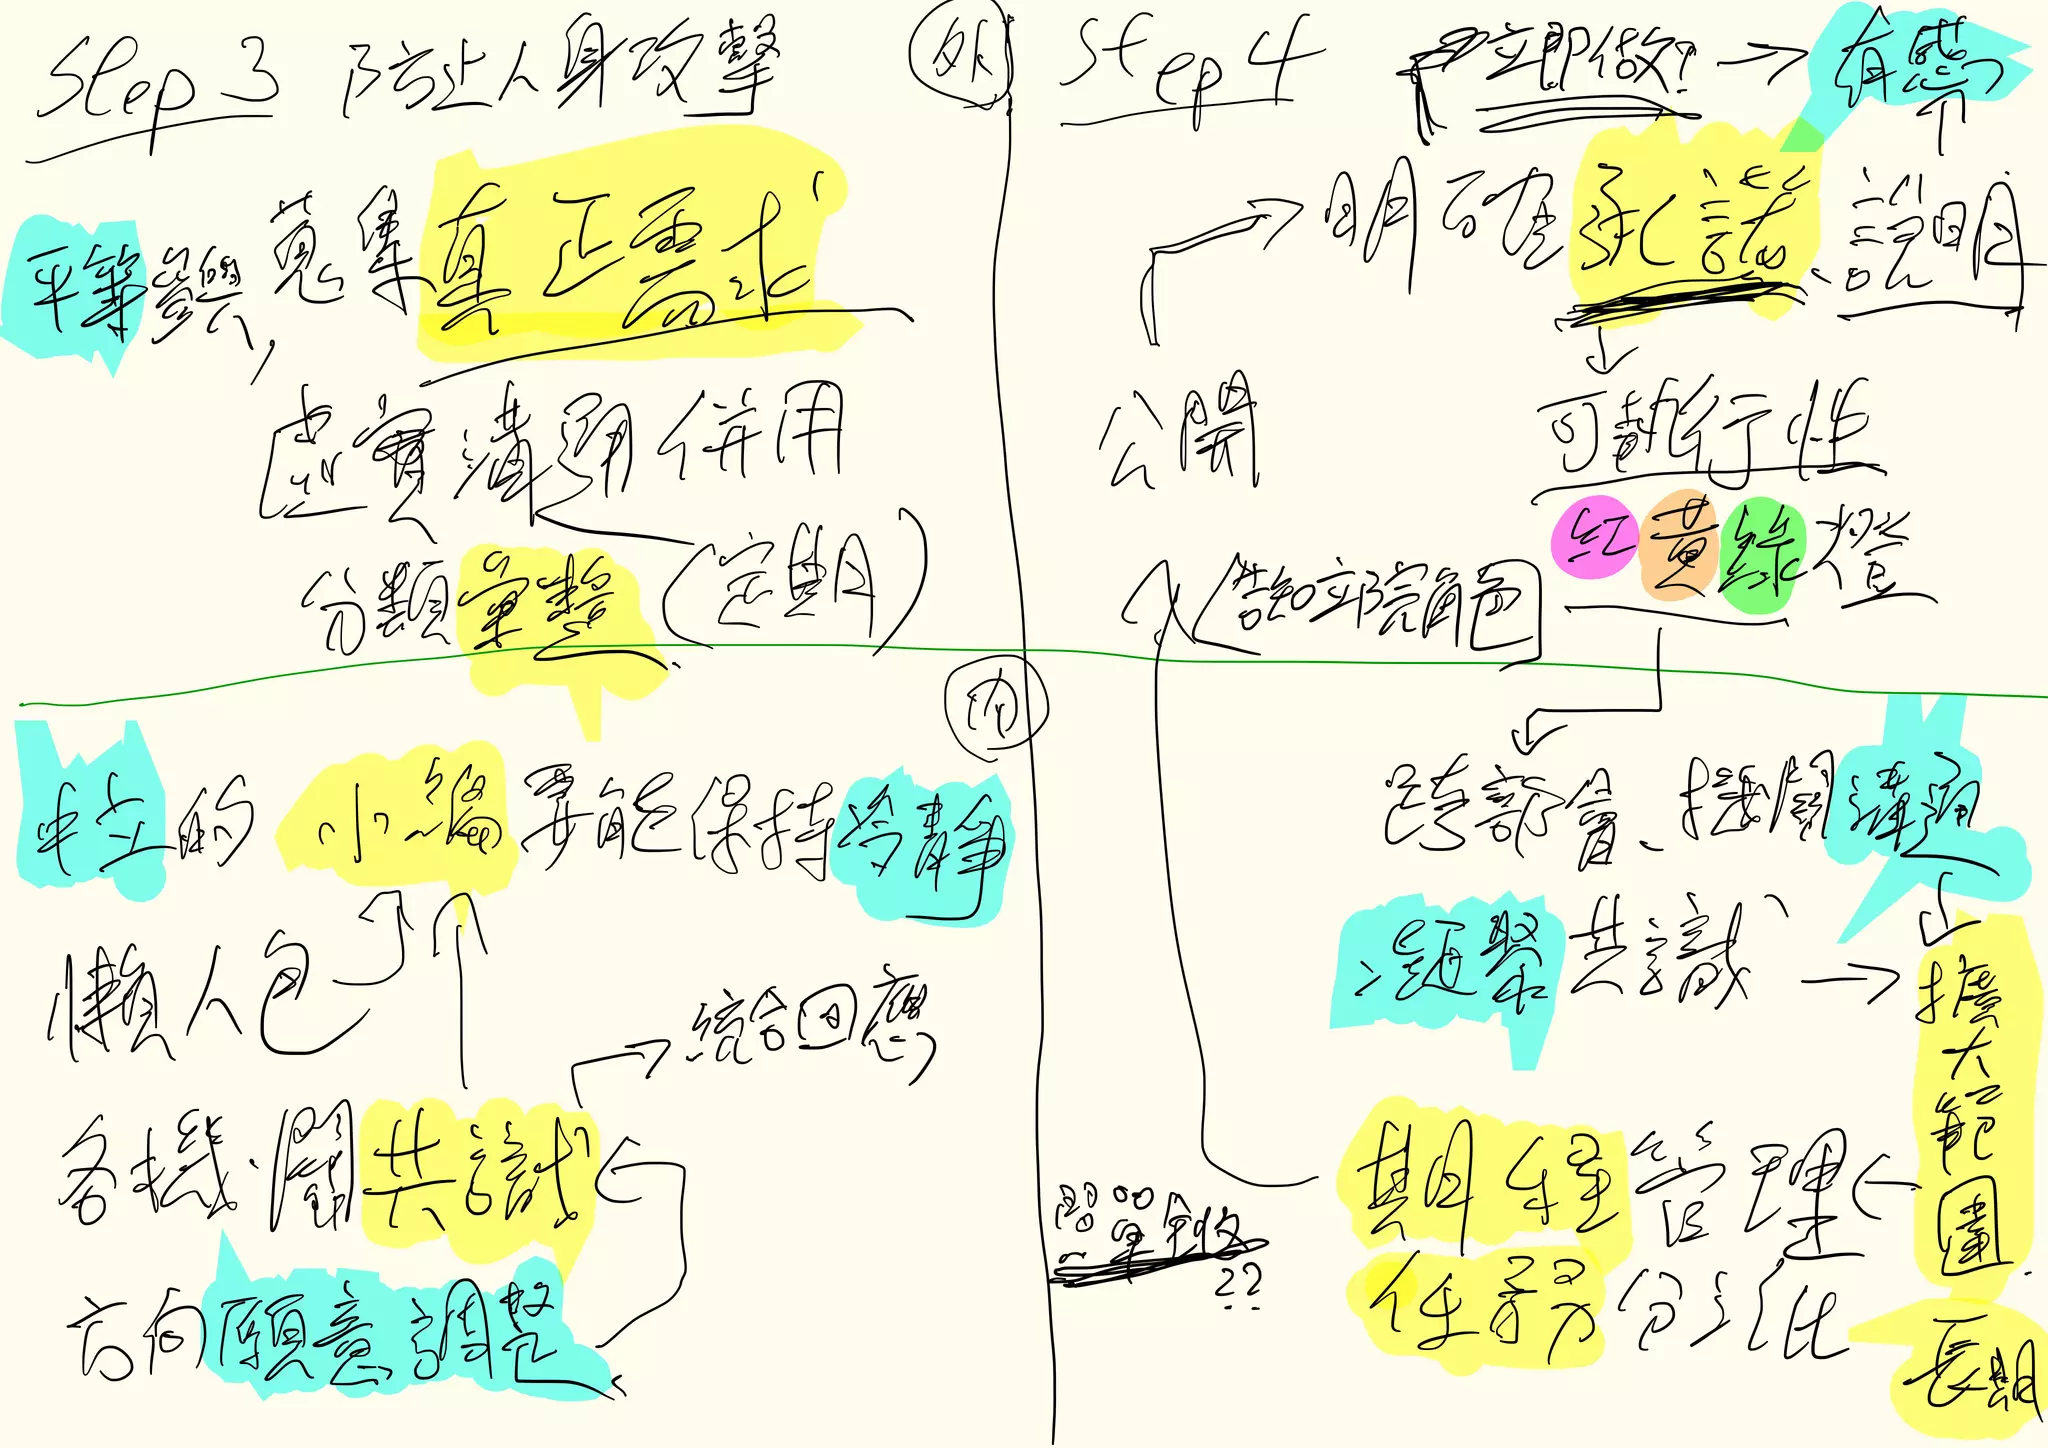 Step 3 防止人身攻擊
平等參與,蒐集真正需求
虛實溝通併用
分類彙整(定期)
外
Step 4 立即做! → 有感
明確承諾、說明
公開
可執行性
紅黃綠燈
(告知立院角色)
內
中立的小編要能保持冷靜
懶人包
統合回應
各機關共識
方向願意調整
跨部會、機關溝通
凝聚共識
擴大範圍
長期
期程管理
任務分派
照單全收
??